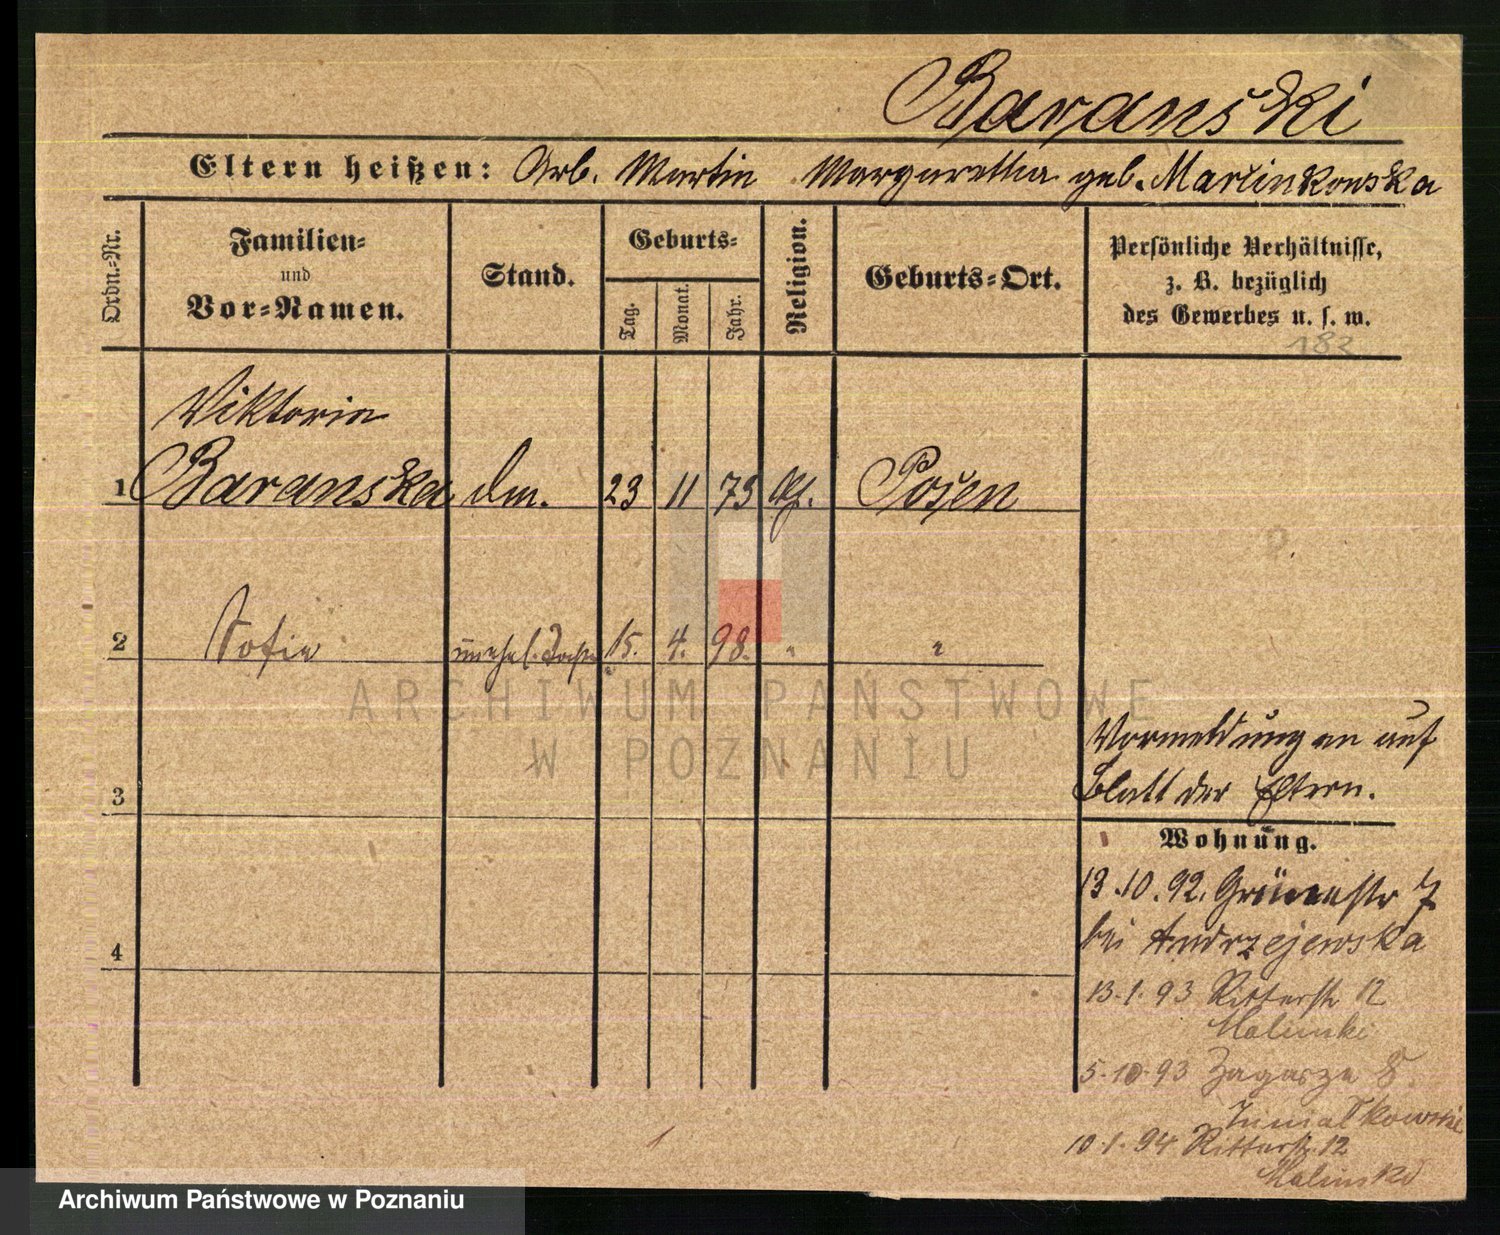 Barański
Eltern heißen: Arb. Martin Margaretha geb. Marcinkowska
Ordn.-Nr.
Familien-
und
Vor-Namen.
Stand.
Geburts-
Tag.
Monat.
Jahr.
Religion.
Geburts-Ort.
Persönliche Verhältnisse,
z. B. bezüglich
des Gewerbes u. s. w.
182
Viktoria
1 Baranska 23 11 73 Posen
2 Sofie unehel. Tocht. 15. 4. 98. " "
ARCHIWUM PAŃSTWOWE
W POZNANIU
Vormeldungen auf
Blatt der Eltern.
3
Wohnung.
13.10.92. Grünestr 7
bei Andrzejewska
4
13.1.93 Ritterstr 12
Malinski
5.10.93 Zagorze 8
10.1.94 Ritterstr. 12
Malinski
Archiwum Państwowe w Poznaniu